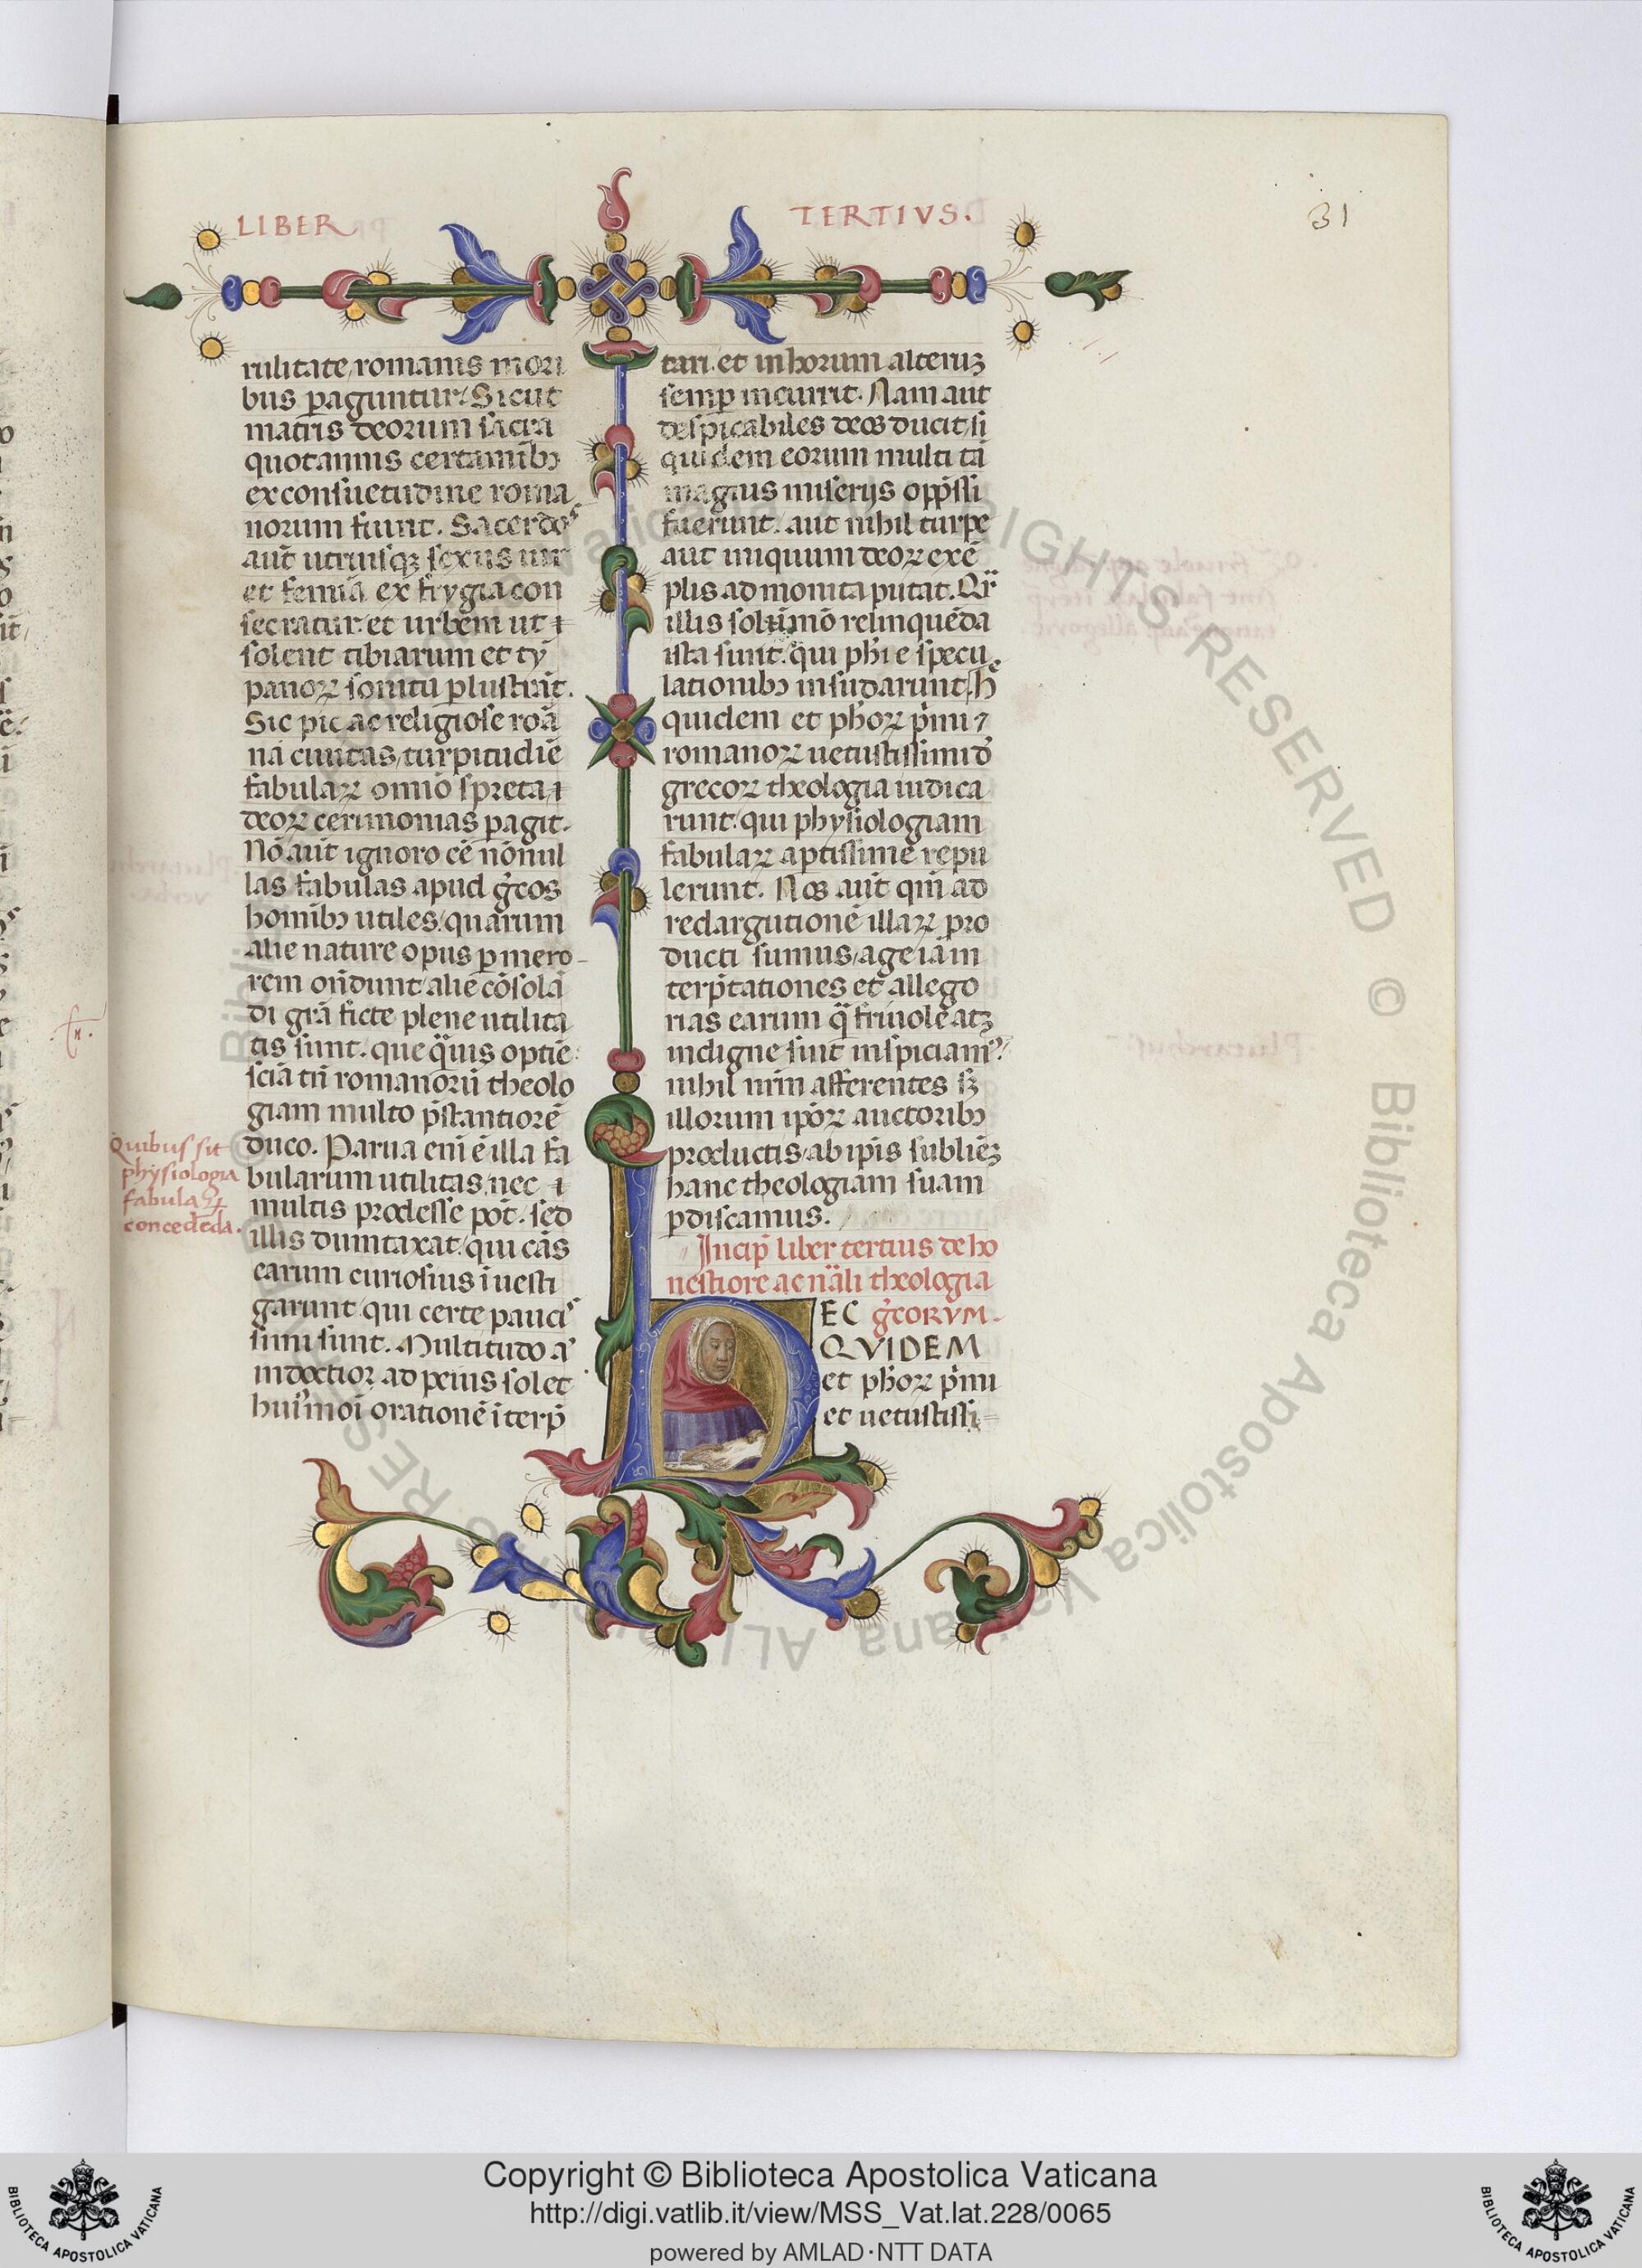 LIBER TERTIVS.
31
rulitate romanis mori
bus ꝑaguntur/ Sicut
matris deorum sacra
quotannis certaminibꝫ
ex consuetudine roma
norum fiunt. Sacerdos
aūt utriusqꝫ sexus uir
et femīa ex frygia con
secratur: et urbem ut ī
solent tibiarum et tȳ
panoꝝ sonitu ꝑlustrāt.
Sic pie ac religiose roā
na ciuitas/turpitudīe
fabulaꝝ omīo spreta/ī
deoꝝ cerimonias ꝑagit.
Nō aūt ignoro eē nōnul
las fabulas apud grecos
homībꝫ utiles/quarum
alie nature opus ꝑ mero-
rem ondunt/alie cōsolā
di grā ficte plene utilita
tis sunt. que quis optīe
sciā tn̄ romanorū theolo
giam multo p̄stantiorē
duco. Parua eni ē illa fa
bularum utilitas, nec ī
multis prodesse pōt. sed
illis dumtaxat/qui cās
earum curiosius īuesti
garunt/qui certe paucis
simi sunt. Multitudo at
indoctioꝝ ad peius solet
huiusmoī orationē īterp̄
Quibus sit
physiologia
fabulaꝝ
concedēda.
tari. et in horum alteruꝫ
semꝑ incurrit. Nam aut
despicabiles deos ducit/si
quidem eorum multi tā
magnis miserijs opp̄ssi
fuerunt. aut nihil turpe
aut iniquum deoꝝ exē
plis admonita putat. Qr̄
illis solūmō relinquēda
ista sunt. qui phi e specu
lationibꝫ insudarunt. Hec
quidem et phoꝝ pri
romanoꝝ uetustissimi de
grecoꝝ theologia iudica
runt/qui physiologiam
fabulaꝝ aptissime repu
lerunt. Nos aūt qui ad
redargutionē illaꝝ pro
ducti sumus/age iā in
terp̄tationes et allego
rias earum q̄ friuole atqꝫ
indigne sint inspiciamus.
nihil nr̄m afferentes sꝫ
illorum ipoꝝ auctoribꝫ
productis/ab ip̄is subliēꝫ
hanc theologiam suam
ꝑdiscamus.
Incip̄ liber tertius de ho
nestiore ac nāli theologia
EC grecorvm.
QVIDEM
et phoꝝ primi
et uetustissi-
Copyright © Biblioteca Apostolica Vaticana
http://digi.vatlib.it/view/MSS_Vat.lat.228/0065
powered by AMLAD·NTT DATA
BIBLIOTECA APOSTOLICA VATICANA
BIBLIOTECA APOSTOLICA VATICANA
© Biblioteca Apostolica Vaticana ALL RIGHTS RESERVED